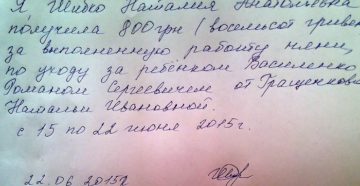 Я Шибко Наталия Анатольевна
получила 800грн /восемьсот гривен
за выполненную работу няни,
по уходу за ребёнком Василенко
Романом Сергеевичем от Гращенково
Натальи Ивановной.
с 15 по 22 июня 2015г.
22.06 2015г